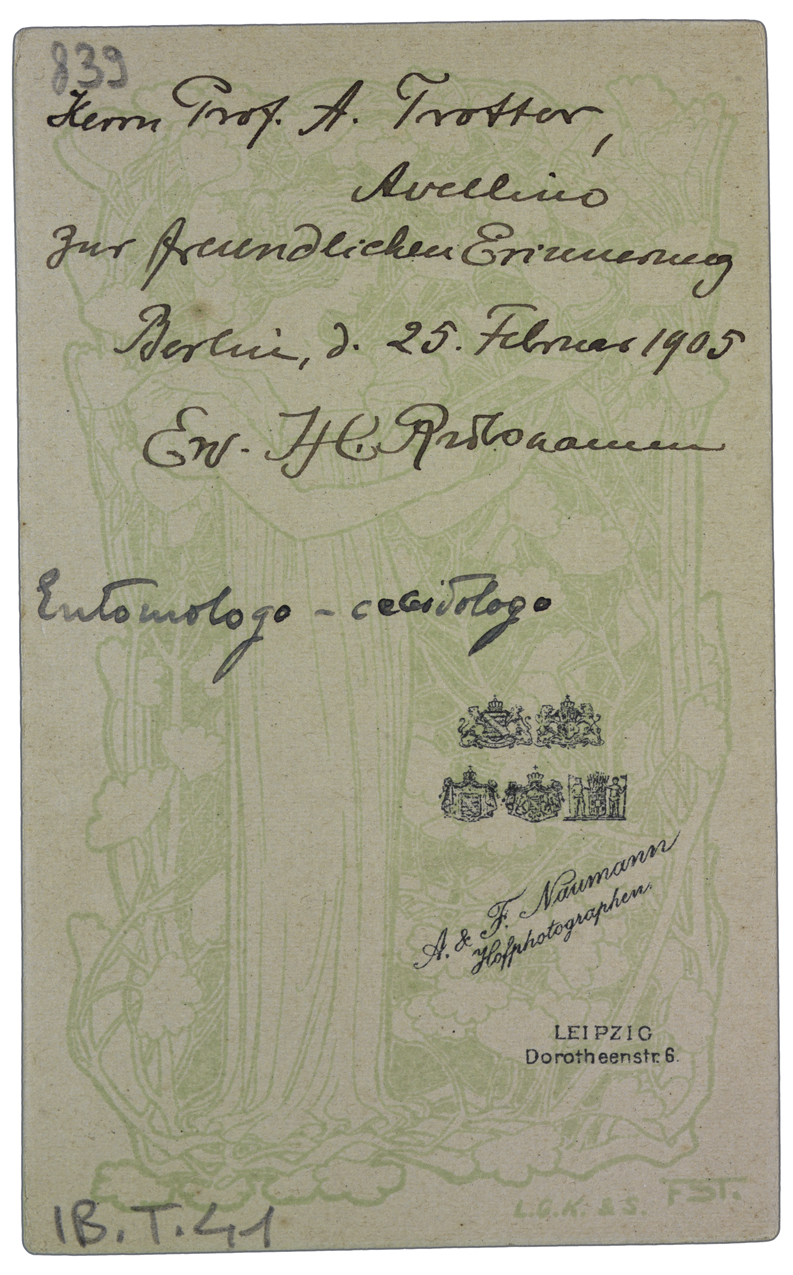 839
Herrn Prof. A. Trotter,
Avellino
zur freundlichen Erinnerung
Berlin, d. 25. Februar 1905
Ew. H. Rübsaamen
Entomologo - cecidologo
A. & F. Naumann
Hofphotographen.
LEIPZIG
Dorotheenstr. 6.
L.G.K. & S. FST.
IB.T.41